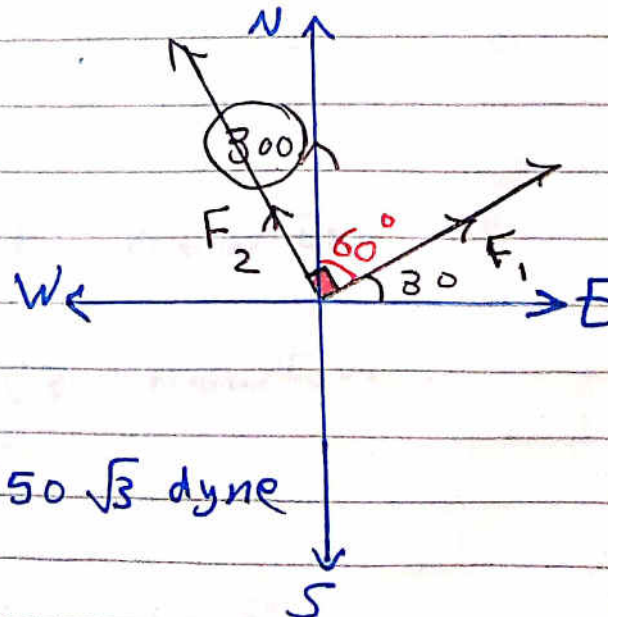 N
300
F₂
60°
F₁
30
W
E
50 √3 dyne
S